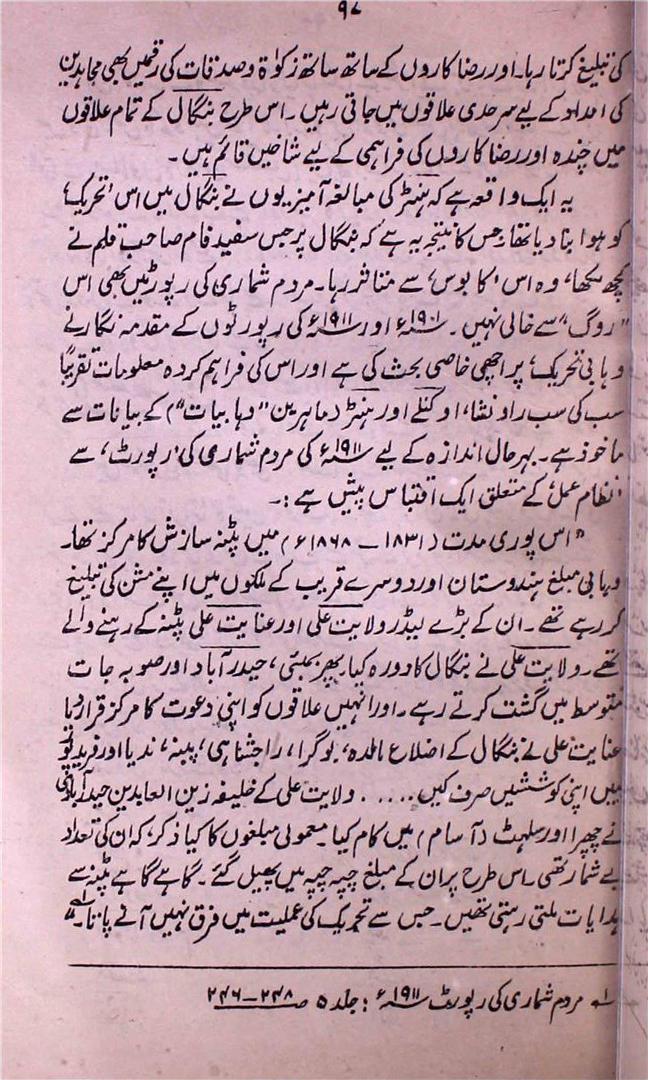 ۹۷
کی تبلیغ کرتا رہا۔ اور رضا کاروں کے ساتھ ساتھ زکوٰة و صدقات کی رقمیں بھی مجاہدین
کی امداد کے لیے سرحدی علاقوں میں جاتی رہیں۔ اس طرح بنگال کے تمام علاقوں
میں چندہ اور رضا کاروں کی فراہمی کے لیے شاخیں قائم ہیں۔
یہ ایک واقعہ ہے کہ ہنٹر کی مبالغہ آمیزیوں نے بنگال میں اس ’تحریک‘
کو ہوا بنا دیا تھا، جس کا نتیجہ یہ ہے کہ بنگال پر جس سفید فام صاحب قلم نے
کچھ لکھا، وہ اس ’کابوس‘ سے متاثر رہا۔ مردم شماری کی رپورٹیں بھی اس
”روگ“ سے خالی نہیں۔ ۱۹۰۱ء اور ۱۹۱۱ء کی رپورٹوں کے مقدمہ نگار نے
’وہابی تحریک‘ پر اچھی خاصی بحث کی ہے اور اس کی فراہم کردہ معلومات تقریباً
سب کی سب راونشا، اوکنلے اور ہنٹر (ماہرین ”وہابیات“) کے بیانات سے
ماخوذ ہے۔ بہر حال اندازہ کے لیے ۱۹۱۱ء کی مردم شماری کی ’رپورٹ‘ سے
’نظام عمل‘ کے متعلق ایک اقتباس پیش ہے :۔
”اس پوری مدت (۱۸۳۱ – ۱۸۶۸ء) میں پٹنہ سازش کا مرکز تھا۔
وہابی مبلغ ہندوستان اور دوسرے قریب کے ملکوں میں اپنے مشن کی تبلیغ
کر رہے تھے۔ ان کے بڑے لیڈر ولایت علی اور عنایت علی پٹنہ کے رہنے والے
تھے۔ ولایت علی نے بنگال کا دورہ کیا۔ پھر بمبئی، حیدرآباد اور صوبہ جات
متوسط میں گشت کرتے رہے۔ اور انہیں علاقوں کو اپنی دعوت کا مرکز قرار دیا
عنایت علی نے بنگال کے اضلاع مالدہ، بوگرا، راجشاہی، پبنہ، ندیا اور فریدپور
میں اپنی کوششیں صرف کیں..... ولایت علی کے خلیفہ زین العابدین حیدرآبادی
نے چھپرا اور سلہٹ (آسام) میں کام کیا۔ معمولی مبلغوں کا کیا ذکر، کہ ان کی تعداد
بے شمار تھی۔ اس طرح پر ان کے مبلغ چپہ چپہ میں پھیل گئے۔ گاہے گاہے پٹنہ سے
ہدایات ملتی رہتی تھیں۔ جس سے تحریک کی عملیت میں فرق نہیں آنے پاتا۔“ ۱ے
۱ے مردم شماری کی رپورٹ ۱۹۱۱ء : جلد ۵ صـ ۲۴۸ – ۲۴۶